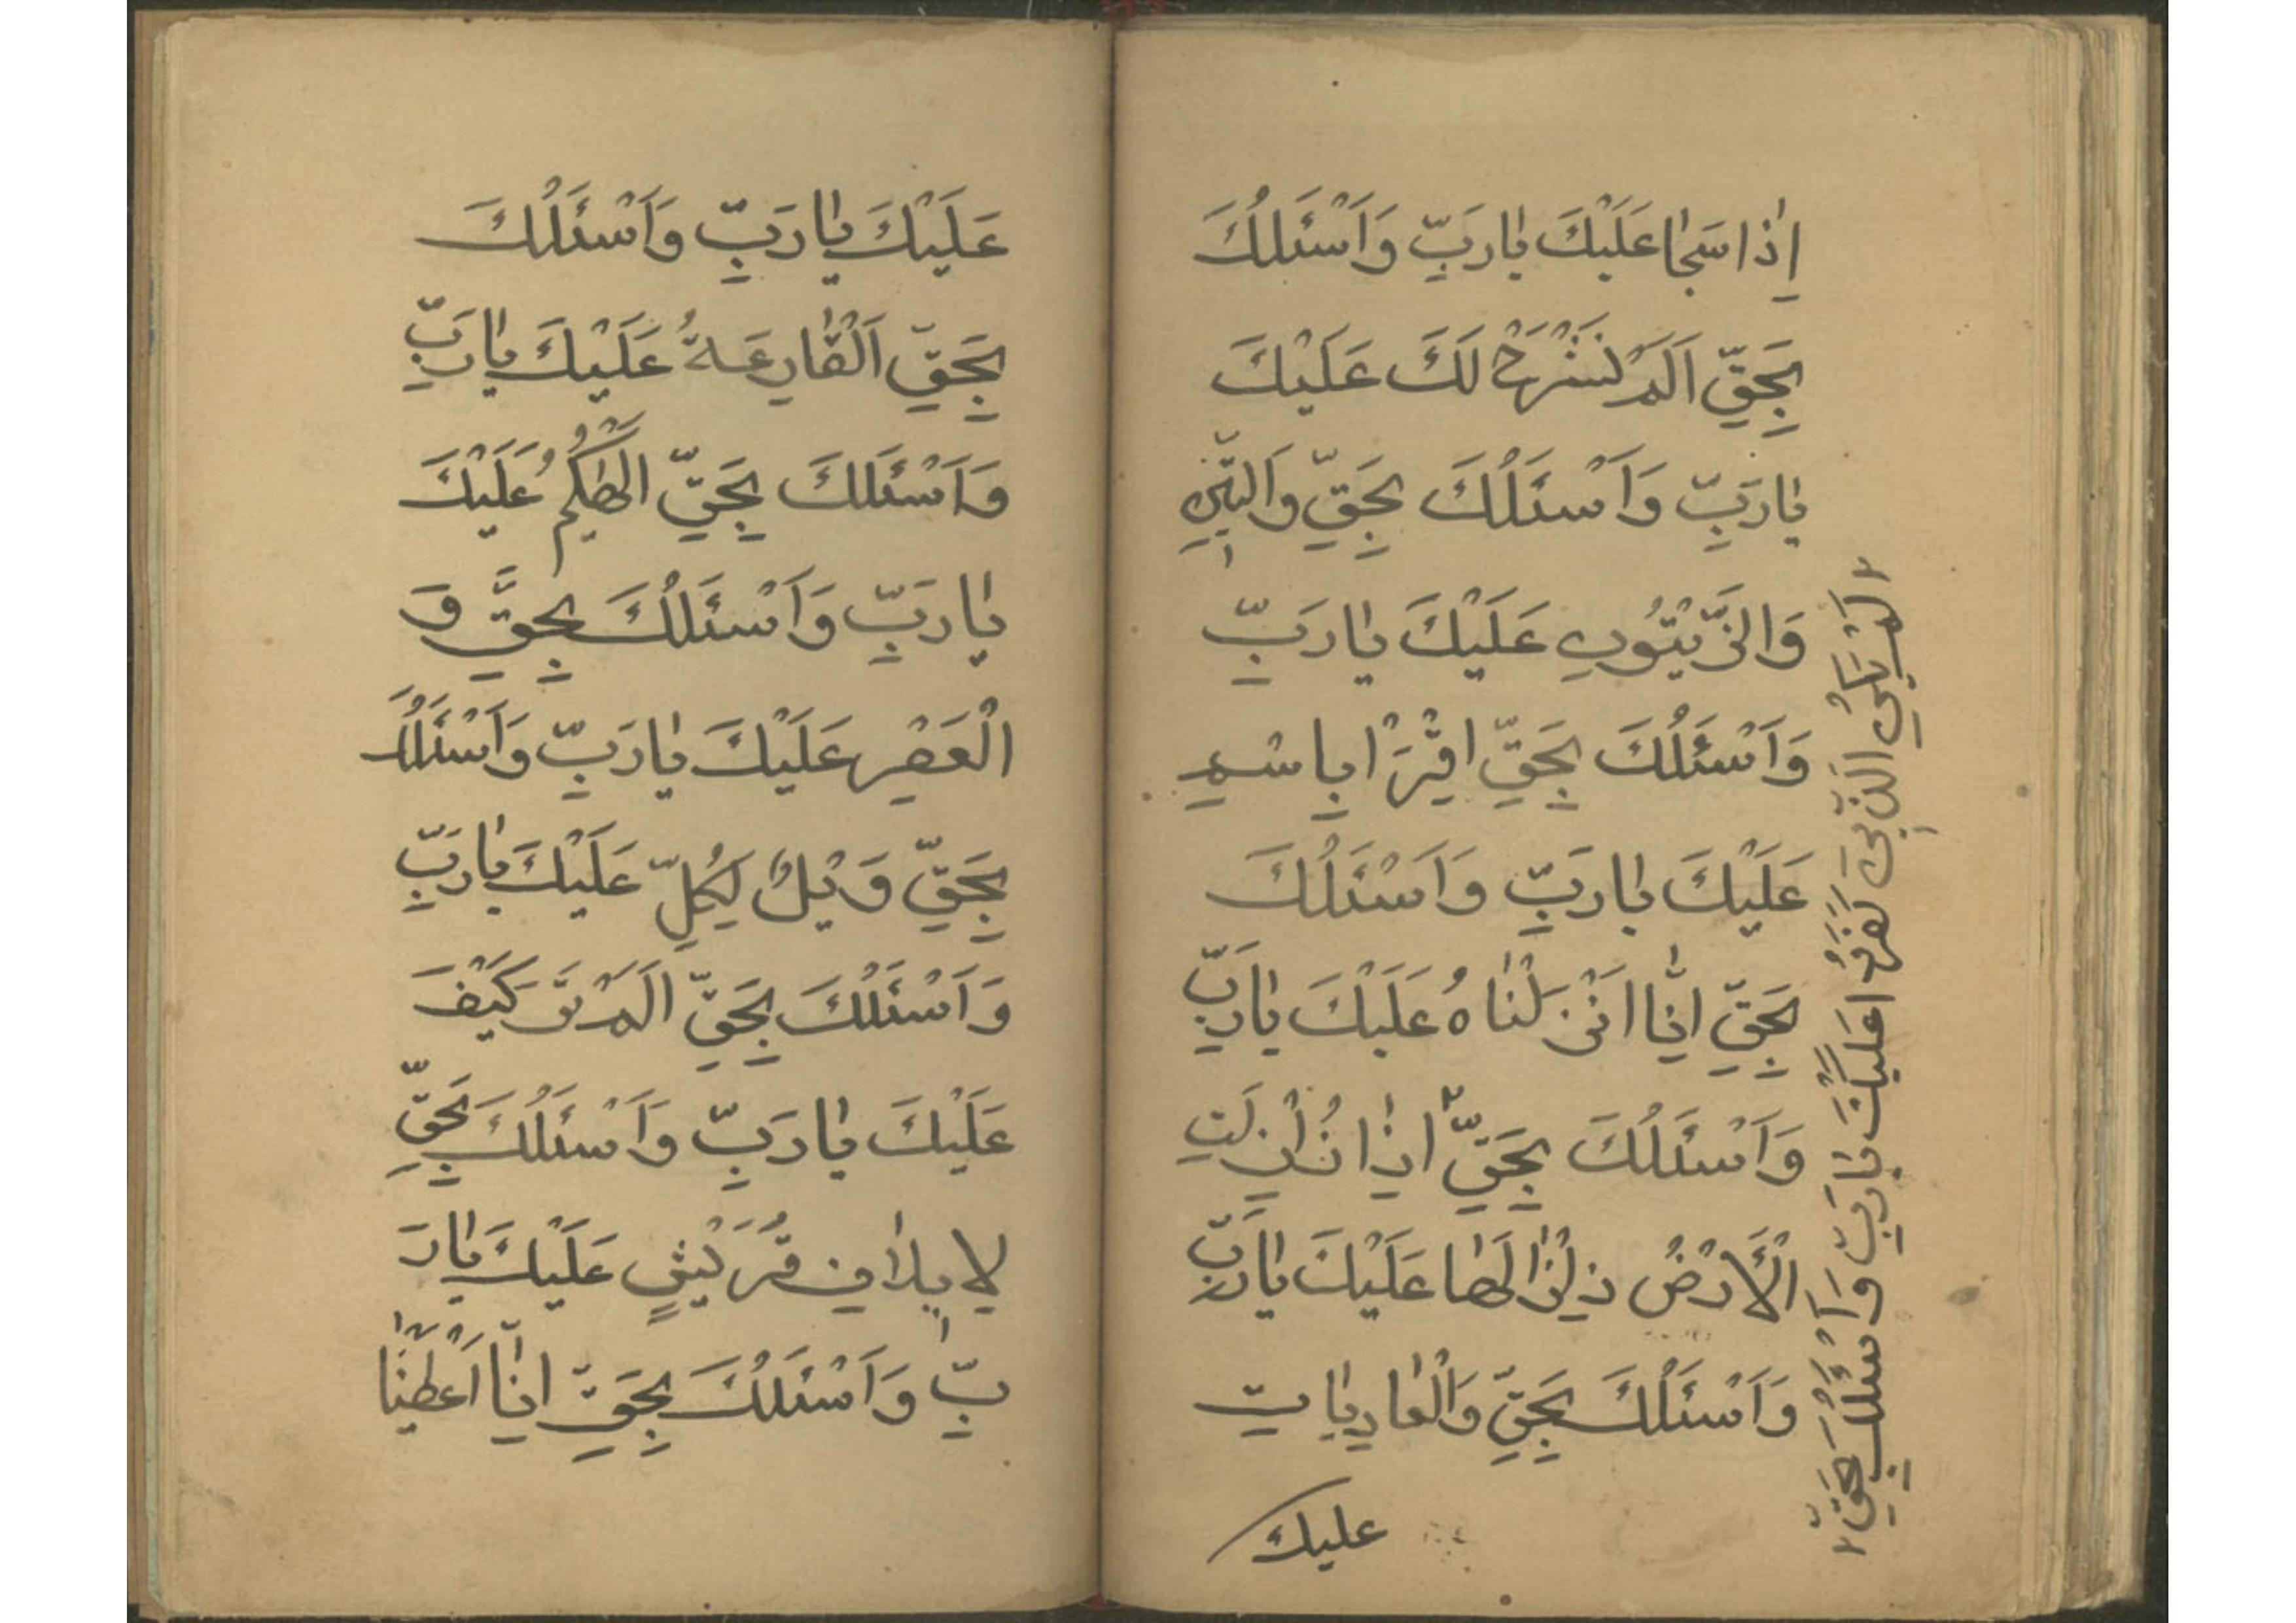 اِذٰا سَجٰا عَلَيْكَ يٰا رَبِّ وَاَسْئَلُكَ
بِحَقِّ اَلَمْ نَشْرَحْ لَكَ عَلَيْكَ
يٰا رَبِّ وَاَسْئَلُكَ بِحَقِّ وَالتّٖينِ
وَالزَّيْتُونِ عَلَيْكَ يٰا رَبِّ
وَاَسْئَلُكَ بِحَقِّ اقْرَاْ بِاسْمِ
عَلَيْكَ يٰا رَبِّ وَاَسْئَلُكَ
بِحَقِّ اِنّٰا اَنْزَلْنٰاهُ عَلَيْكَ يٰا رَبِّ
وَاَسْئَلُكَ بِحَقِّ ٢ اِذٰا زُلْزِلَتِ
الْاَرْضُ زِلْزٰالَهٰا عَلَيْكَ يٰا رَبِّ
وَاَسْئَلُكَ بِحَقِّ وَالْعٰادِيٰاتِ
عليك
٢ لَمْ يَكُنِ الَّذٖينَ كَفَرُوا عَلَيْكَ يٰا رَبِّ وَاَسْئَلُكَ بِحَقِّ ٢
عَلَيْكَ يٰا رَبِّ وَاَسْئَلُكَ
بِحَقِّ اَلْقٰارِعَةُ عَلَيْكَ يٰا رَبِّ
وَاَسْئَلُكَ بِحَقِّ اَلْهٰكُمُ عَلَيْكَ
يٰا رَبِّ وَاَسْئَلُكَ بِحَقِّ وَ
الْعَصْرِ عَلَيْكَ يٰا رَبِّ وَاَسْئَلُكَ
بِحَقِّ وَيْلٌ لِكُلِّ عَلَيْكَ يٰا رَبِّ
وَاَسْئَلُكَ بِحَقِّ اَلَمْ تَرَ كَيْفَ
عَلَيْكَ يٰا رَبِّ وَاَسْئَلُكَ بِحَقِّ
لِاٖيلٰافِ قُرَيْشٍ عَلَيْكَ يٰا رَ
بِّ وَاَسْئَلُكَ بِحَقِّ اِنّٰا اَعْطَيْنٰا